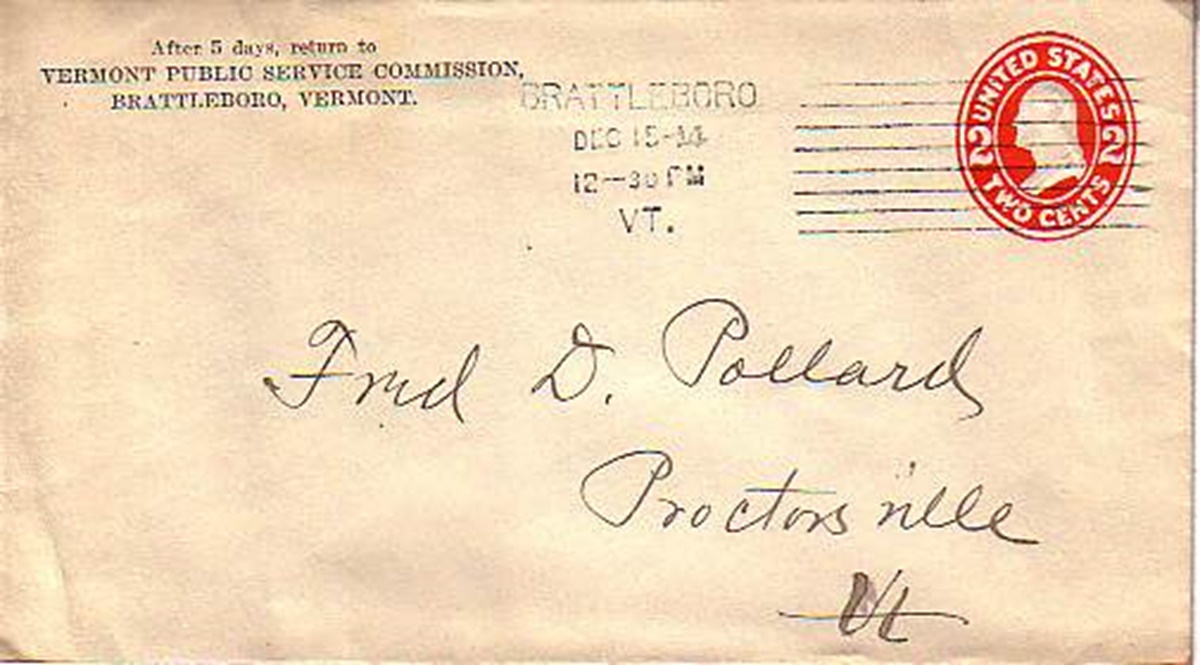 After 5 days, return to
VERMONT PUBLIC SERVICE COMMISSION,
BRATTLEBORO, VERMONT.
BRATTLEBORO
DEC 15-14
12-30 PM
VT.
UNITED STATES
2 2
TWO CENTS
Fred D. Pollard
Proctorsville
Vt